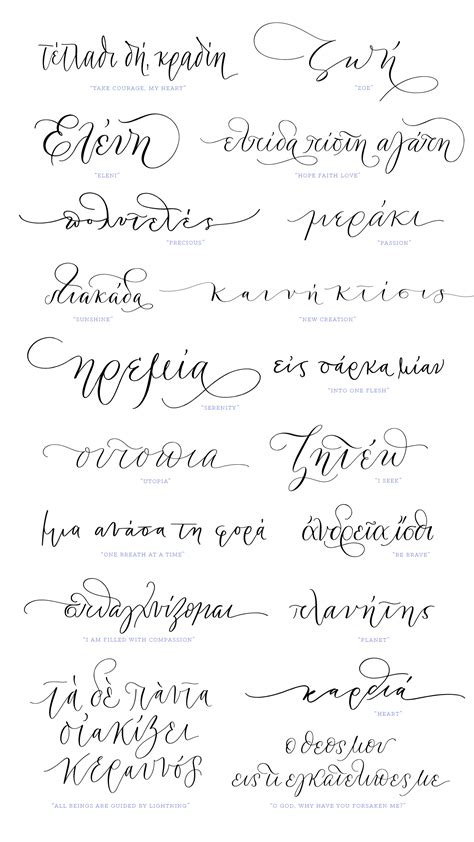 τέτλαθι δή, κραδίη
"TAKE COURAGE, MY HEART"
ζωή
"ZOE"
Ελένη
"ELENI"
ελπίδα πίστη αγάπη
"HOPE FAITH LOVE"
πολυτελές
"PRECIOUS"
μεράκι
"PASSION"
λιακάδα
"SUNSHINE"
καινή κτίσις
"NEW CREATION"
ηρεμία
"SERENITY"
εἰς σάρκα μίαν
"INTO ONE FLESH"
ουτοπια
"UTOPIA"
ζητέω
"I SEEK"
μια ανάσα τη φορά
"ONE BREATH AT A TIME"
ἀνδρεῖα ἴσθι
"BE BRAVE"
"I AM FILLED WITH COMPASSION"
πλανήτης
"PLANET"
τὰ δὲ πάντα
οἰακίζει
κεραυνός
"ALL BEINGS ARE GUIDED BY LIGHTNING"
καρδιά
"HEART"
ο θεος μου
εις τι εγκατελιπες με
"O GOD, WHY HAVE YOU FORSAKEN ME?"